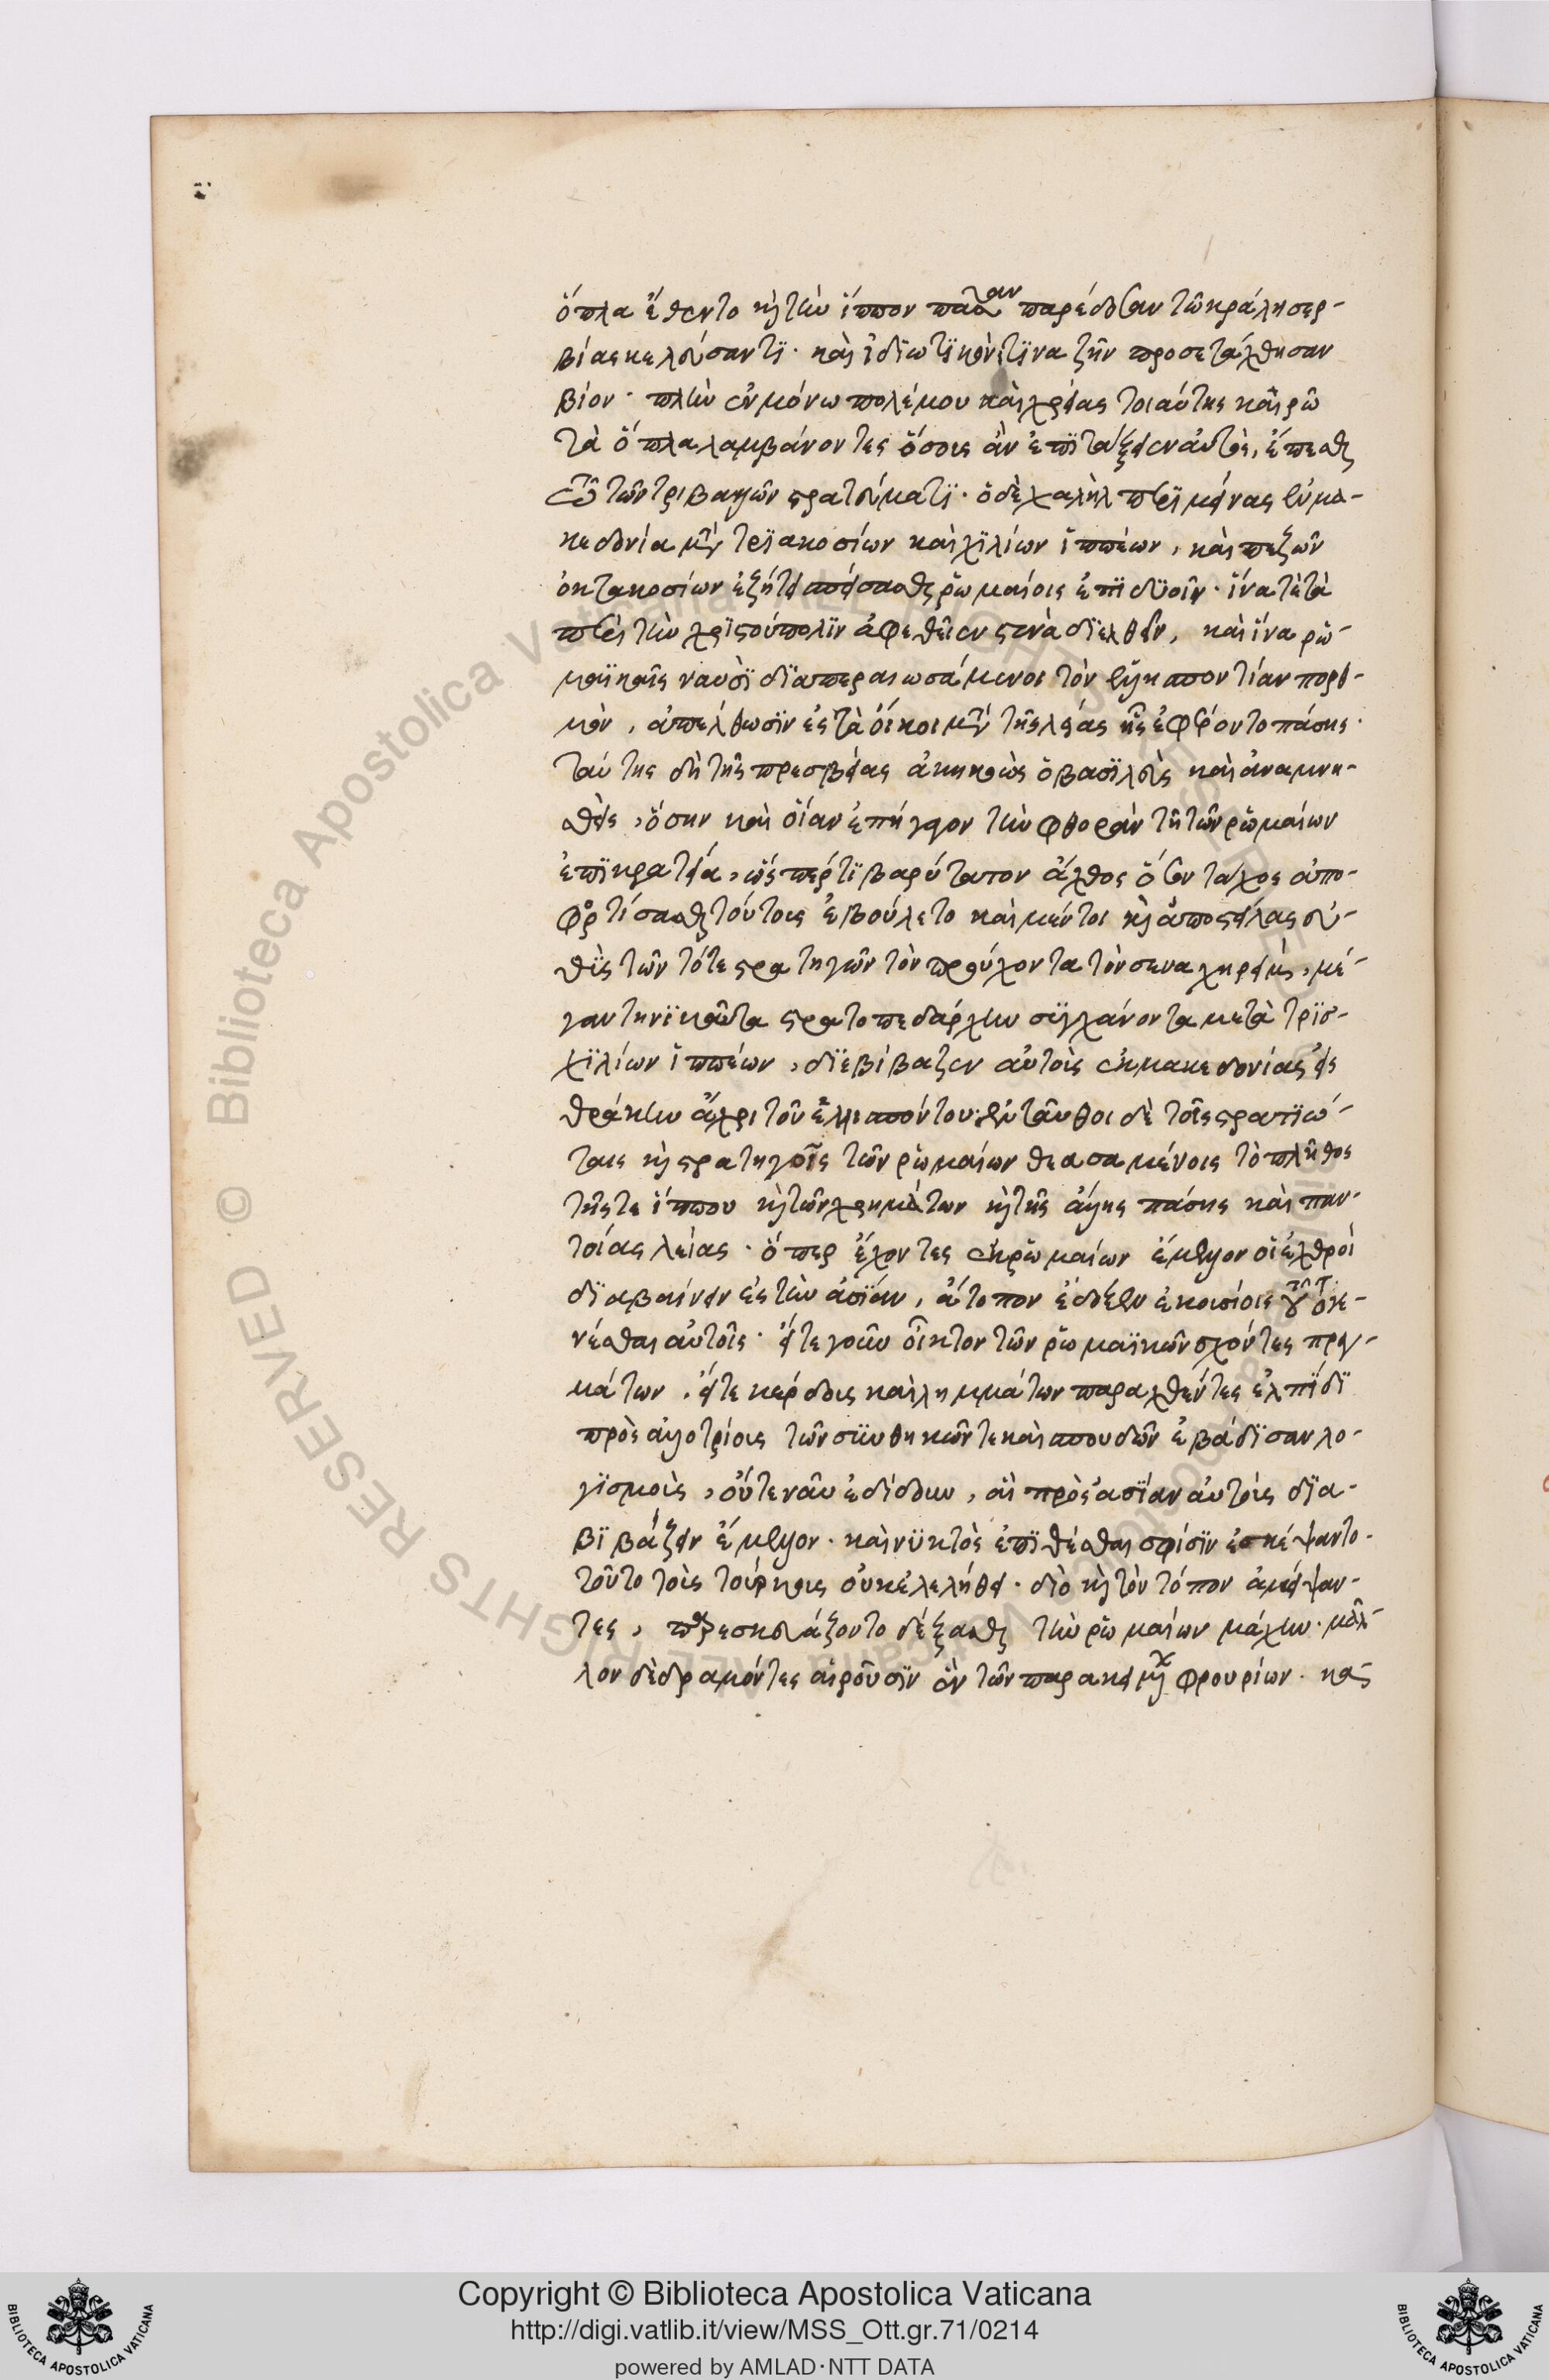 ὅπλα ἔθεντο καὶ τὴν ἵππον πᾶσαν παρέδοσαν τῶ κράλη σερ-
βίας κελεύσαντϊ· καὶ ἰδϊωτϊκόν τϊνα ζῆν προσετάχθησαν
βίον· πλὴν ἐν μόνω πολέμου καὶ χρείας τοιαύτης καιρῶ
τὰ ὅπλα λαμβάνοντες ὅσοις ἂν ἐπϊτάξειεν αὐτὸς, ἕπεσθαι
σὺν τῶ τῶν τριβαλῶν στρατεύματϊ· ὁ δὲ χαλὴλ περϊμείνας ἐν μα-
κεδονία μετὰ τρϊακοσίων καὶ χϊλίων ἱππέων, καὶ πεζῶν
ὀκτακοσίων ἐζήτει σπείσασθαι ῥωμαίοις ἐπὶ δϋοῖν· ἵνα τὲ τὰ
περὶ τὴν χρϊστούπολϊν ἀφεθεῖεν στενὰ δϊελθεῖν, καὶ ἵνα ῥω-
μαϊκαῖς ναυσὶ δϊαπεραιωσάμενοι τὸν ἑλλησποντίαν πορθ-
μὸν, ἀπελθωσϊν ἐς τὰ οἴκοι μετὰ τῆς λείας ἧς ἐφέροντο πάσης·
ταύτης δὴ τῆς πρεσβείας ἀκηκοὼς ὁ βασϊλεὺς καὶ ἀναμνη-
σθεὶς, ὅσην καὶ οἵαν ἐπήγαγον τὴν φθορὰν τῆ τῶν ῥωμαίων
ἐπϊκρατεία, ὥσπερ τϊ βαρύτατον ἄχθος ὅτι ἐν τάχος ἀπο-
φορτίσασθαι τούτοις ἐβούλετο καὶ μέντοι καὶ ἀποστείλας εὐ-
θὺς τῶν τότε στρατηγῶν τὸν προὔχοντα τὸν σεναχηρεὶμ, μέ-
γαν τηνϊκαῦτα στρατοπεδάρχην τϋγχάνοντα μετὰ τρϊσ-
χϊλίων ἱππέων, δϊεβίβαζεν αὐτοὺς ἐκ μακεδονίας εἰς
θράκην ἄχρι τοῦ ἑλλησπόντου· ἐνταῦθοι δὲ τοῖς στρατϊώ-
ταις καὶ στρατηγοῖς τῶν ῥωμαίων θεασαμένοις τὸ πλῆθος
τῆς τε ἵππου καὶ τῶν χρημάτων καὶ τῆς ἄλλης πάσης καὶ παν-
τοίας λείας· ὅπερ ἔχοντες ἐκ ῥωμαίων ἔμελλον οἱ ἐχθροὶ
δϊαβαίνειν ἐς τὴν ἀσϊάν, ἄτοπον ἔδοξεν ἑκουσίοις τοῦτο γε-
νέσθαι αὐτοῖς· εἴτε γοῦν οἶκτον τῶν ῥωμαϊκῶν σχόντες πραγ-
μάτων, εἴτε κέρδους καὶ λημμάτων παραχθέντες ἐλπίδϊ
πρὸς ἀλλοτρίους τῶν σϋνθηκῶν τε καὶ σπουδῶν ἐβάδϊσαν λο-
γϊσμοὺς, οὔτε ναῦν ἐδίδουν, αἳ πρὸς ἀσϊὰν αὐτοὺς δϊα-
βϊβάζειν ἔμελλον· καὶ νϋκτὸς ἐπϊθέσθαι σφίσϊν ἐσκέψαντο·
τοῦτο τοὺς τούρκους οὐκ ἐλελήθει· διὸ καὶ τὸν τόπον ἀμείψαν-
τες, παρεσκευάζοντο δέξασθαι τὴν ῥωμαίων μάχην· μᾶλ-
λον δὲ δραμόντες αἱροῦσϊν ἓν τῶν παρακειμένων φρουρίων· καὶ